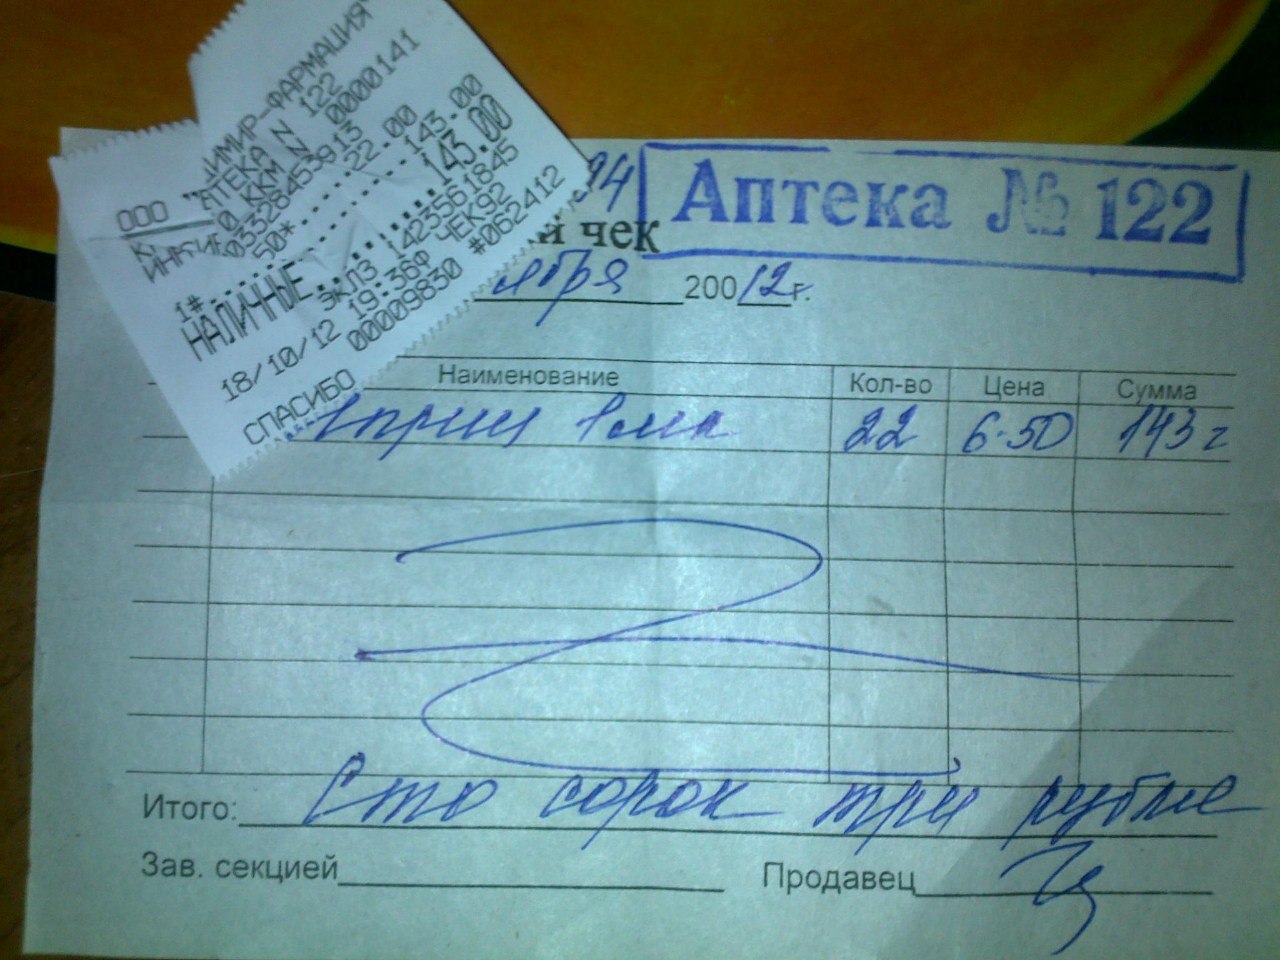 ИМИР-ФАРМАЦИЯ"
ООО "
АПТЕКА N 122
ККМ N 0000141
ИНН
033284533913
50*
22.00
1#
143.00
НАЛИЧНЫЕ
143.00
ЭКЛЗ 1423561845
18/10/12 19:36Ф ЧЕК92
00009830 #062412
СПАСИБО
94
Аптека № 122
й чек
ября 20012г.
Наименование Кол-во Цена Сумма
22 6-50 143
Итого: Сто сорок три рубля
Зав. секцией Продавец